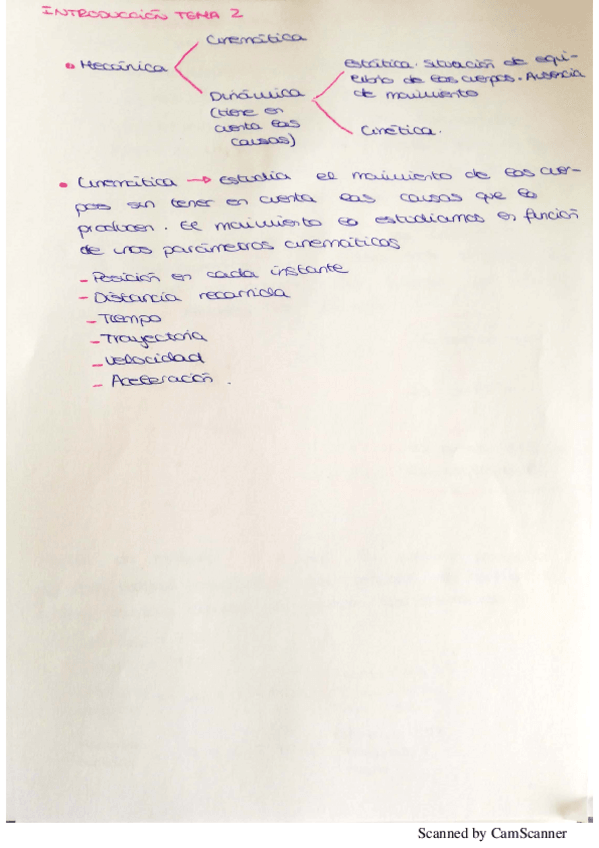 INTRODUCCIÓN TEMA 2
Cinemática
Mecánica
Estática. Situación de equi-
librio de los cuerpos. Ausencia
de movimiento
Dinámica
(tiene en
cuenta las
causas)
Cinética.
Cinemática → estudia el movimiento de los cuer-
pos sin tener en cuenta las causas que lo
producen. El movimiento lo estudiamos en función
de unos parámetros cinemáticos
- Posición en cada instante
- Distancia recorrida
- Tiempo
- Trayectoria
- Velocidad
- Aceleración.
Scanned by CamScanner